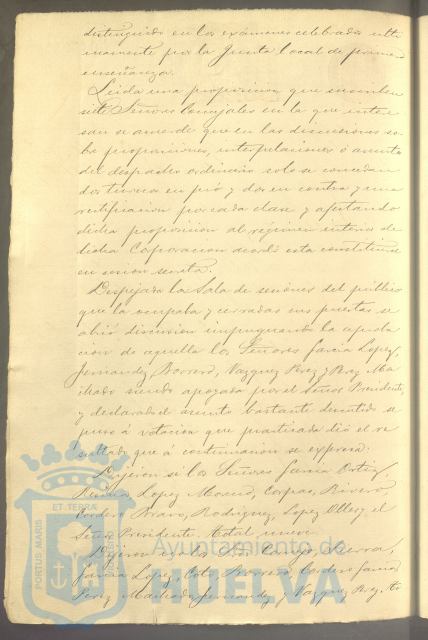 distinguido en los exámenes celebrados ulti
mamente por la Junta local de primera
enseñanza.
Leida una proposicion que suscriben
siete Señores Concejales en la que intere
san se acuerde que en las discusiones so-
bre proposiciones, interpelaciones ó asuntos
del despacho ordinario solo se concedan
dos turnos en pró y dos en contra y una
rectificacion por cada clase y afectando
dicha proposicion al regimen interior de
dicha Corporacion acordó esta constituirse
en sesion secreta.
Despejada la Sala de sesiones del público
que la ocupaba y cerradas sus puertas se
abrió discusion impugnando la aproba
cion de aquella los Señores Garcia Lopez,
Fernandez, Borrero, Vazquez Perez y Perez Ma
chado siendo apoyada por el Señor Presidente,
y declarado el asunto bastante discutido se
puso á votacion que practicada dió el re
sultado que á continuacion se expresa:
Dijeron si los Señores Garcia Ortiz,
Lopez Moreno, Rivero,
Cordero Bravo, Rodriguez, Lopez y el
Señor Presidente. Total nueve.
Dijeron no los Señores
Garcia Lopez, Coto, Borrero, Cordero Garcia
Perez Machado, Fernandez y Vazquez Perez. To
PORTUS MARIS
ET TERRÆ
CUSTODIA
Ayuntamiento de
HUELVA